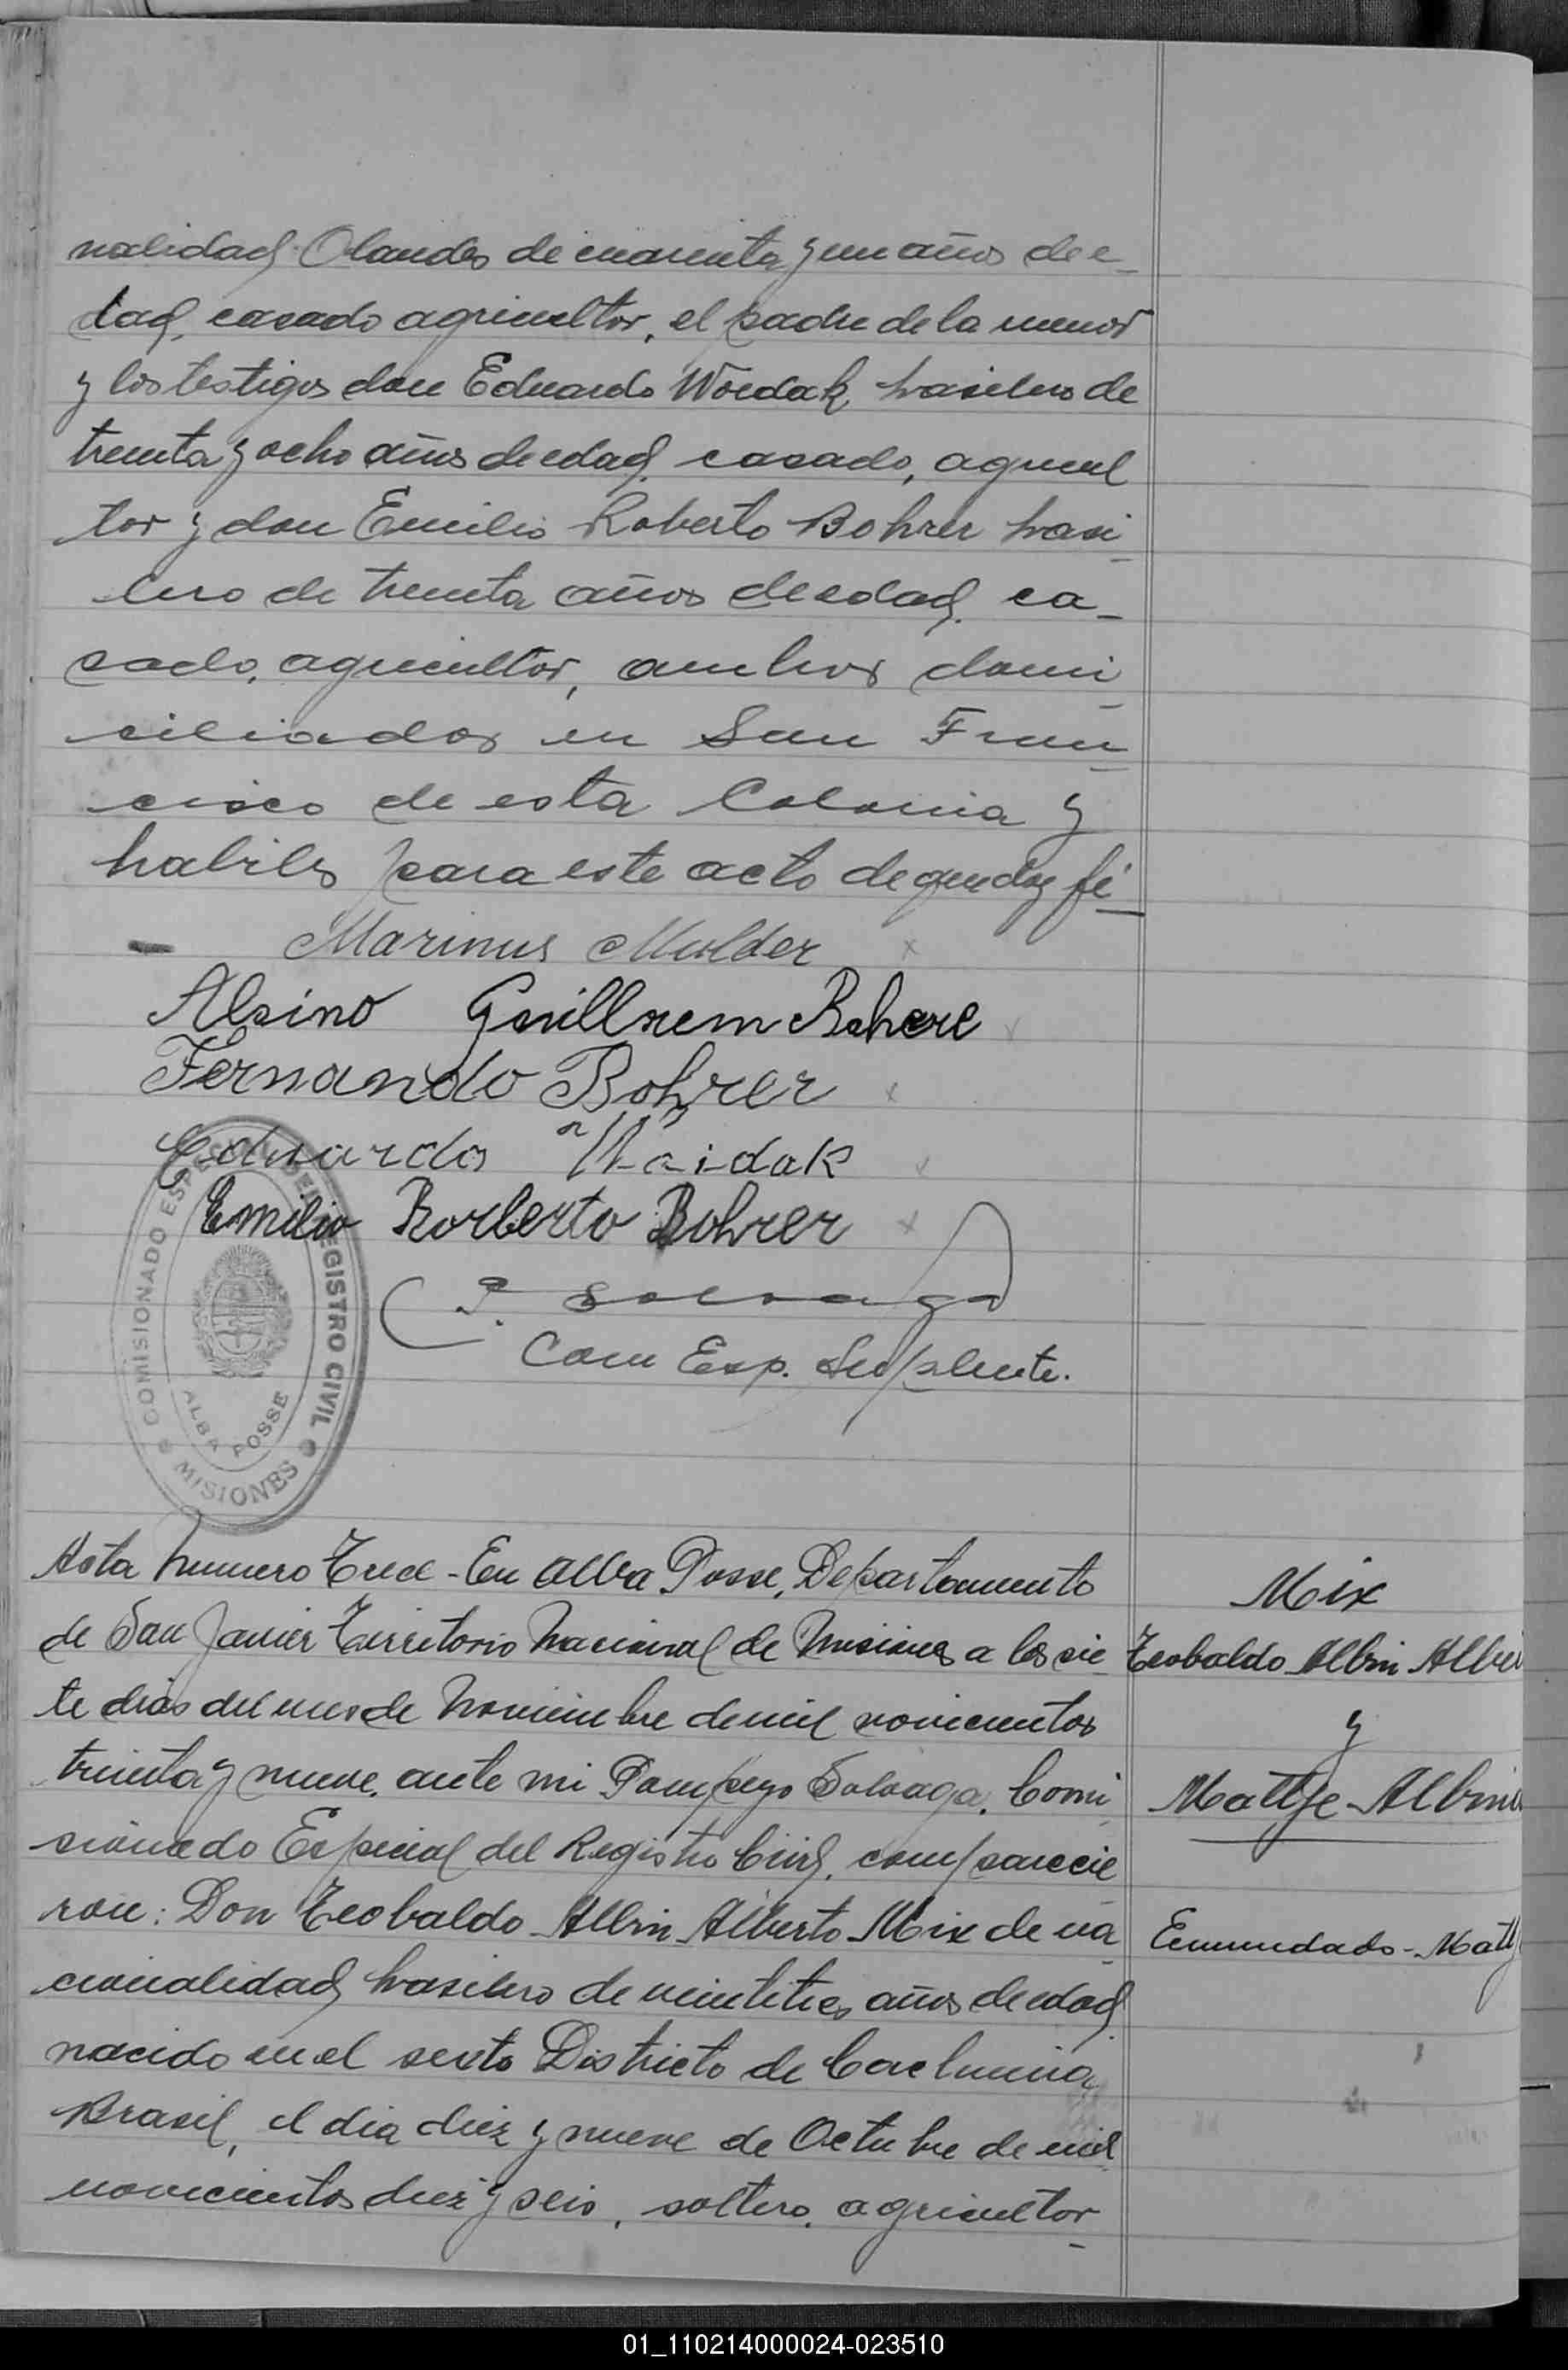 nalidad Olandes de cuarenta y un años de e-
dad, casado agricultor, el padre de la menor
y los testigos don Eduardo Woidak brasilero de
treinta y ocho años de edad, casado, agricul
tor y don Emilio Roberto Bohrer brasi-
lero de treinta años de edad, ca-
sado, agricultor, ambos domi-
ciliados en San Fran-
cisco de esta Colonia y
habiles para este acto de que doy fé
Marinus Mulder
Alsino Guillrem Bohere
Fernando Bohrer
Eduardo Waidak
Emilio Rorberto Bohrer
P. Solvaga
Com Esp. Suplente.
COMISIONADO ESPECIAL DEL REGISTRO CIVIL
ALBA POSSE
MISIONES
Acta Numero Trece - En Alba Posse, Departamento
de San Javier Territorio Nacional de Misiones a los sie-
te dias del mes de Noviembre de mil novicientos
treinta y nueve, ante mi Pompeyo Solvaga, Comi-
sionado Especial del Registro Civil, comparecie
ron: Don Teobaldo Albin Alberto Mix de na-
cionalidad brasilero de veintitres años de edad,
nacido en el sexto Districto de Cachuera
Brasil, el dia diez y nueve de Octubre de mil
novicientos diez y seis, soltero, agricultor-
Mix
Teobaldo Albin Alber
y
Mattje Albina
Enmendado - Mattj
01_110214000024-023510